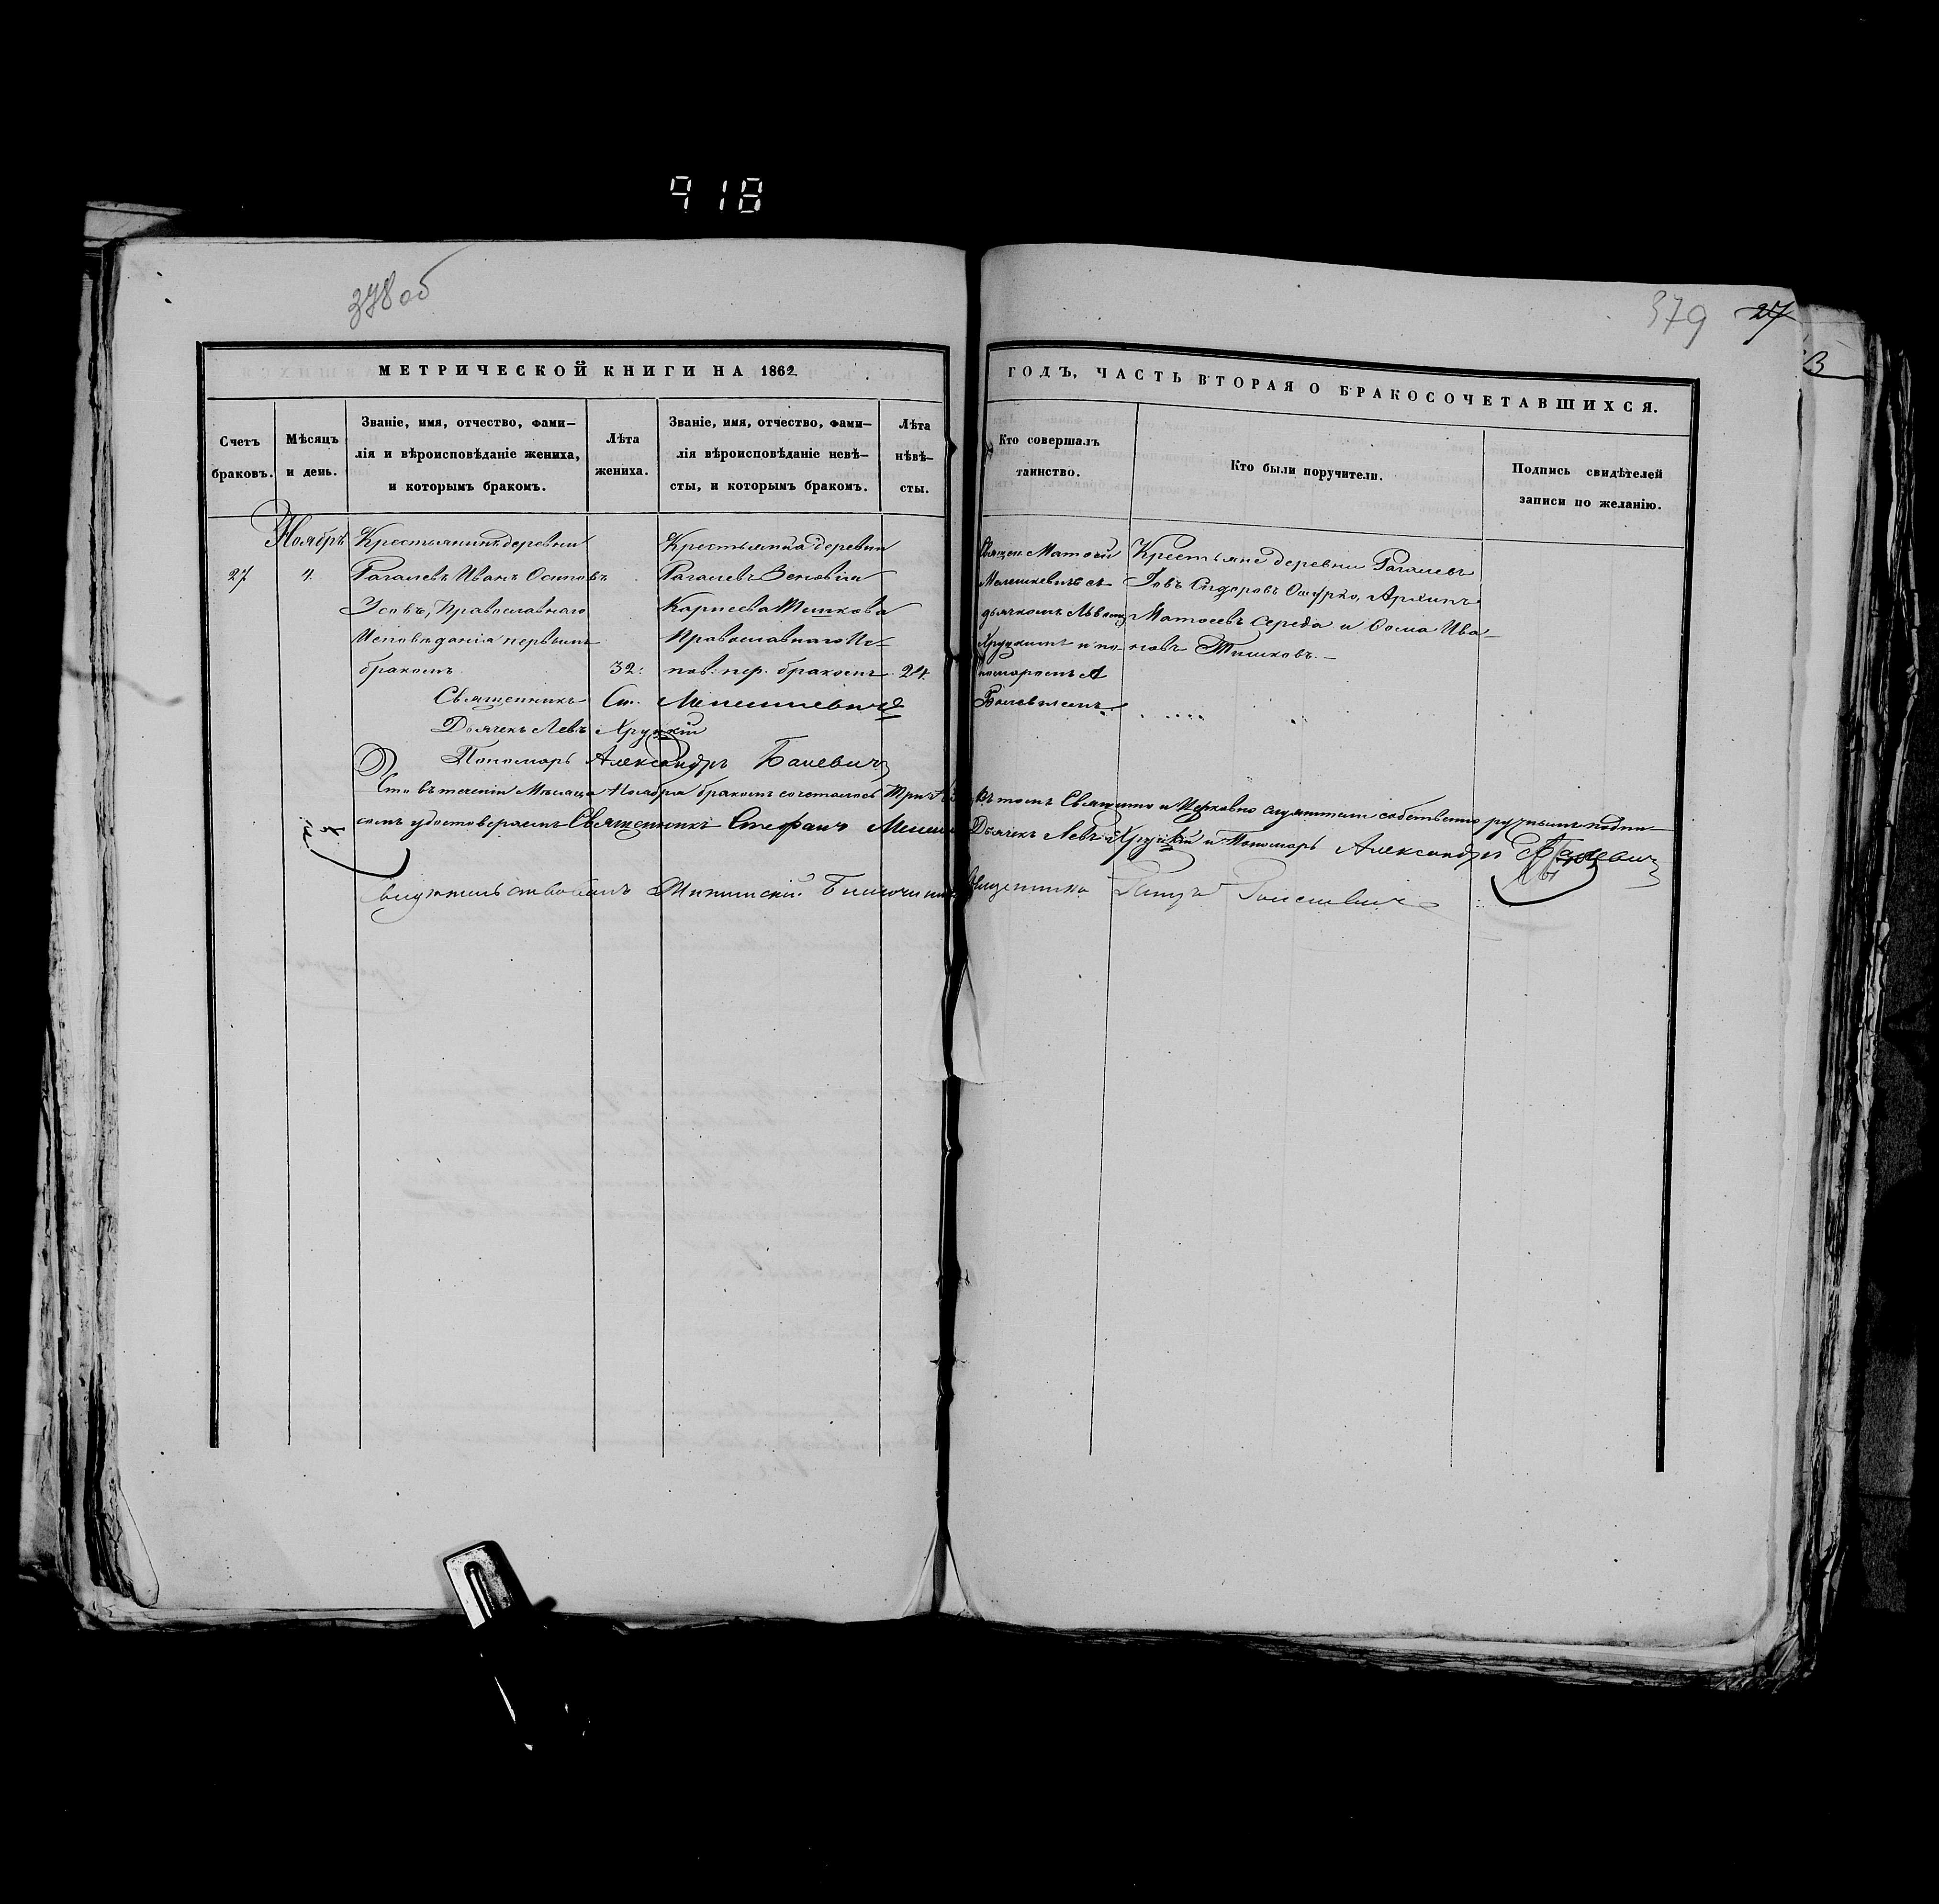 918
378 об
379 27
МЕТРИЧЕСКОЙ КНИГИ НА 1862
ГОДЪ, ЧАСТЬ ВТОРАЯ О БРАКОСОЧЕТАВШИХСЯ.
Счетъ
браковъ.
Мѣсяцъ
и день.
Званіе, имя, отчество, фами–
лія и вѣроисповѣданіе жениха,
и которымъ бракомъ.
Лѣта
жениха.
Званіе, имя, отчество, фами–
лія вѣроисповѣданіе невѣ–
сты, и которымъ бракомъ.
Лѣта
нѣвѣ–
сты.
Кто совершалъ
таинство.
Кто были поручители.
Подпись свидѣтелей
записи по желанію.
27
Ноябрь
4.
Крестьянинъ деревни
Рагалевъ Иванъ Осиповъ
Усовъ, Православнаго
Исповѣданія первымъ
бракомъ
32:
Крестьянка деревни
Рагалевъ Зеновія
Карпеева Тишкова
Православнаго Ис–
пов: пер. бракомъ
24.
Священ. Матѳей
съ
дьячкомъ Львомъ
Хруцкимъ и по–
номаремъ А
Крестьяне деревни Рагалевъ
Іовъ Сидоровъ Ошурко, Архипъ
Матѳеевъ Середа и Ѳома Ива–
новъ Тишковъ. –
Священникъ Ст.
Дьячекъ Левъ Хруцкій
Пономарь Александръ Балевичъ
Что въ теченіи Мѣсяца Ноября бракомъ сочеталось Три въ томъ Священно и Церковно служители собственно ручнымъ подпи–
сомъ удостоверяемъ Священникъ Стефанъ Дьячекъ Левъ Хруцкій и Пономарь Александръ Балевичъ
Свидѣтельствовалъ Священникъ